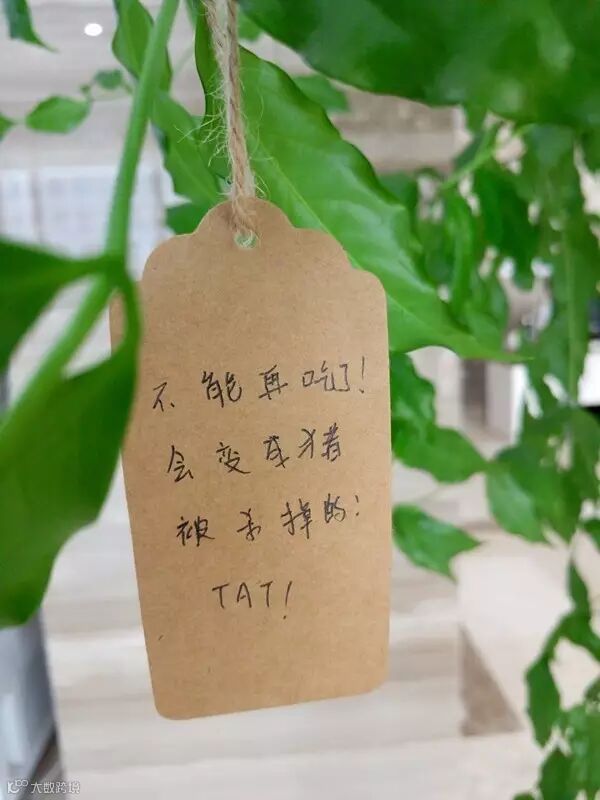 不能再吃了!
会变成猪
被杀掉的!
TAT!
大数跨境